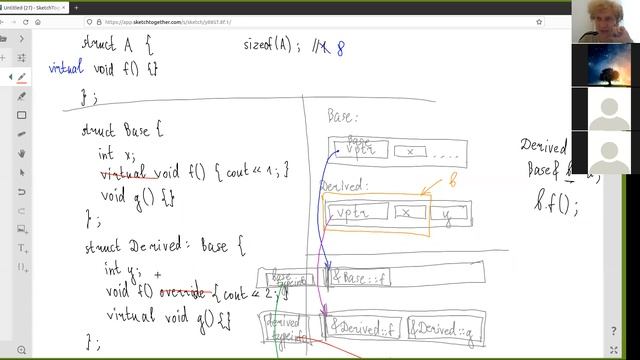 Untitled (27) - SketchTog
https://app.sketchtogether.com/s/sketch/
struct A {
sizeof(A); // 8
virtual void f() {}
};
struct Base {
int x;
virtual void f() { cout << 1; }
void g() {}
};
struct Derived: Base {
int y;
void f() override { cout << 2; }
virtual void g() {}
};
Base:
Base
vptr
x
....
Derived:
b
vptr
x
y
Base typeinfo
&Base::f
derived typeinfo
&Derived::f
&Derived::g
Derived
Base&
b.f();